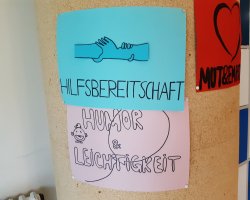 HILFSBEREITSCHAFT
HUMOR
&
LEICHTIGKEIT